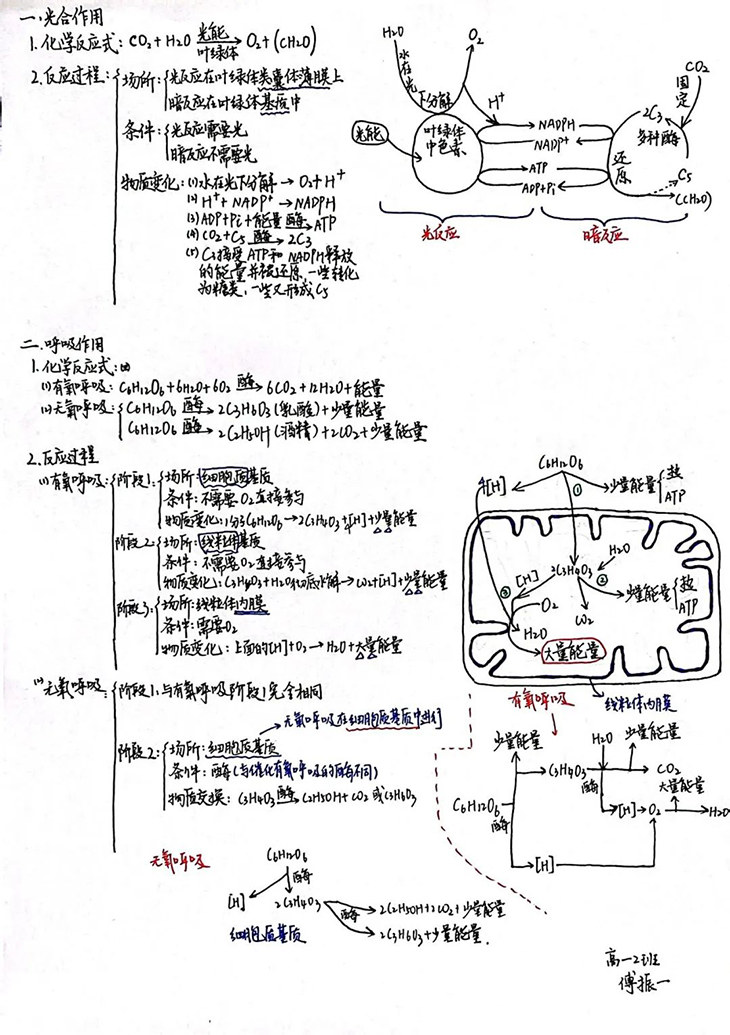 一.光合作用
1.化学反应式: CO2+H2O 光能 叶绿体 O2+(CH2O)
2.反应过程:
场所: 光反应在叶绿体类囊体薄膜上
暗反应在叶绿体基质中
条件: 光反应需要光
暗反应不需要光
物质变化: (1)水在光下分解→O2+H+
(2) H++NADP+→NADPH
(3) ADP+Pi+能量 酶 ATP
(4) CO2+C5 酶 2C3
(5) C3接受ATP和NADPH释放
的能量并被还原,一些转化
为糖类,一些又形成C5
H2O
O2
水在光下分解
H+
光能
叶绿体
中色素
NADPH
NADP+
ATP
ADP+Pi
CO2
固定
2C3
多种酶
还原
C5
(CH2O)
光反应
暗反应
二.呼吸作用
1.化学反应式:
(1)有氧呼吸: C6H12O6+6H2O+6O2 酶 6CO2+12H2O+能量
(2)无氧呼吸: C6H12O6 酶 2C3H6O3(乳酸)+少量能量
C6H12O6 酶 2C2H5OH(酒精)+2CO2+少量能量
2.反应过程
(1)有氧呼吸: 阶段1: 场所:细胞质基质
条件:不需要O2直接参与
物质变化:1分子C6H12O6→2C3H4O3+[H]+少量能量
阶段2: 场所:线粒体基质
条件:不需要O2直接参与
物质变化:C3H4O3+H2O彻底水解→CO2+[H]+少量能量
阶段3: 场所:线粒体内膜
条件:需要O2
物质变化:上面的[H]+O2→H2O+大量能量
C6H12O6
4[H]
①
少量能量
热
ATP
H2O
2C3H4O3
②
[H]
③
O2
CO2
少量能量
热
ATP
H2O
大量能量
有氧呼吸
线粒体内膜
(2)无氧呼吸: 阶段1:与有氧呼吸阶段1完全相同
无氧呼吸在细胞质基质中进行
阶段2: 场所:细胞质基质
条件:酶(与催化有氧呼吸的酶不同)
物质变换:C3H4O3 酶 C2H5OH+CO2 或C3H6O3
少量能量
H2O
少量能量
C3H4O3
酶
CO2
大量能量
C6H12O6
酶
[H]→O2
H2O
[H]
无氧呼吸
C6H12O6
酶
[H]
2C3H4O3
酶
2C2H5OH+2CO2+少量能量
2C3H6O3+少量能量.
细胞质基质
高一2班
傅振一